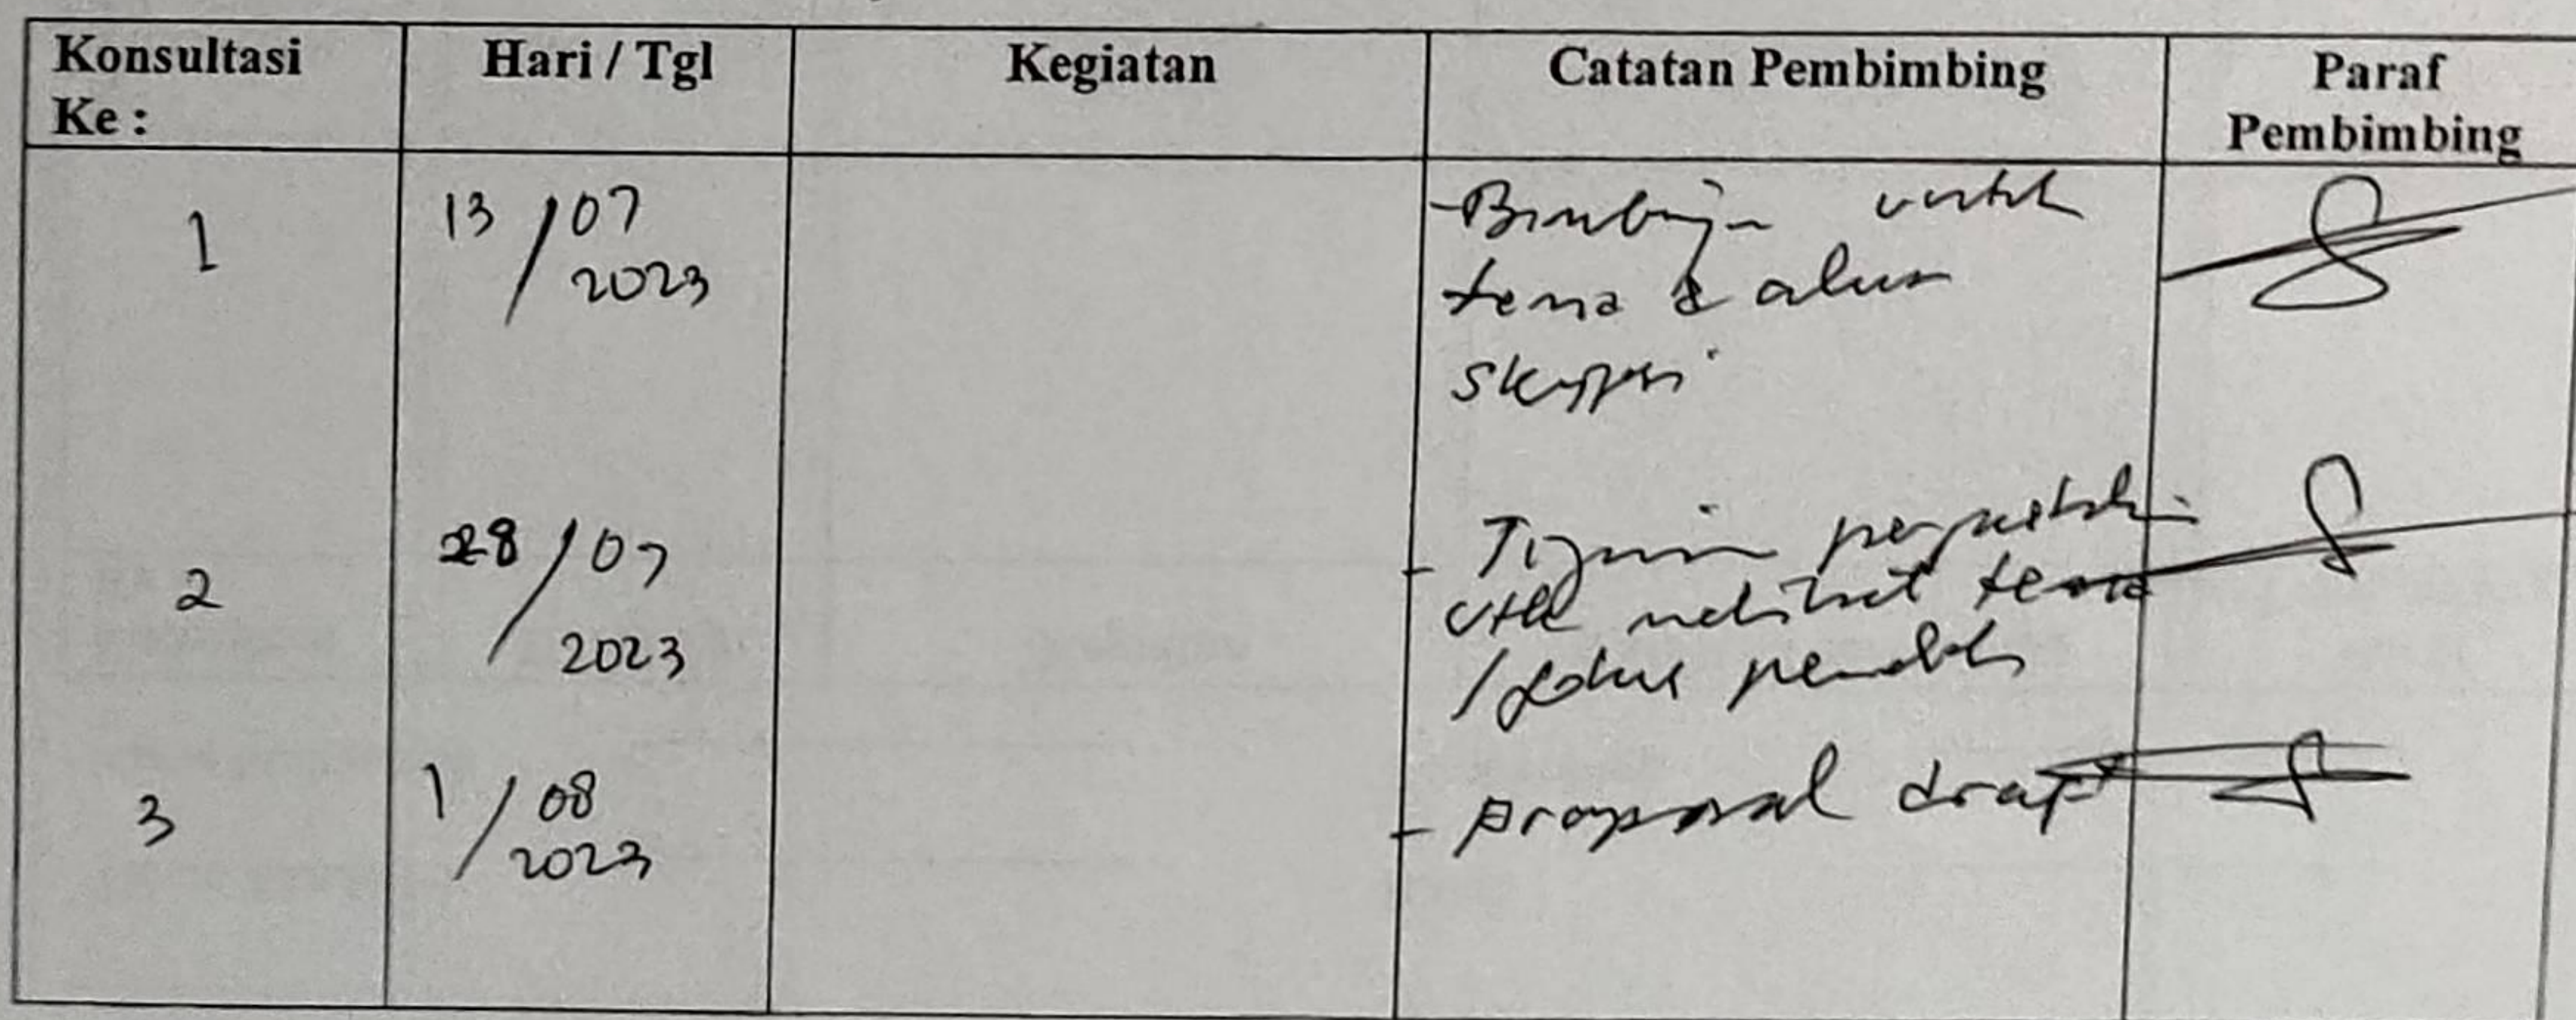 Konsultasi Ke : Hari / Tgl Kegiatan Catatan Pembimbing Paraf Pembimbing
1 13 / 07 2023
- Bimbingan untuk
tema & alur
skripsi
2 28 / 07 2023
- Tinjauan perpustakaan
utk melihat tema
/ fokus
3 1 / 08 2023
- proposal draft